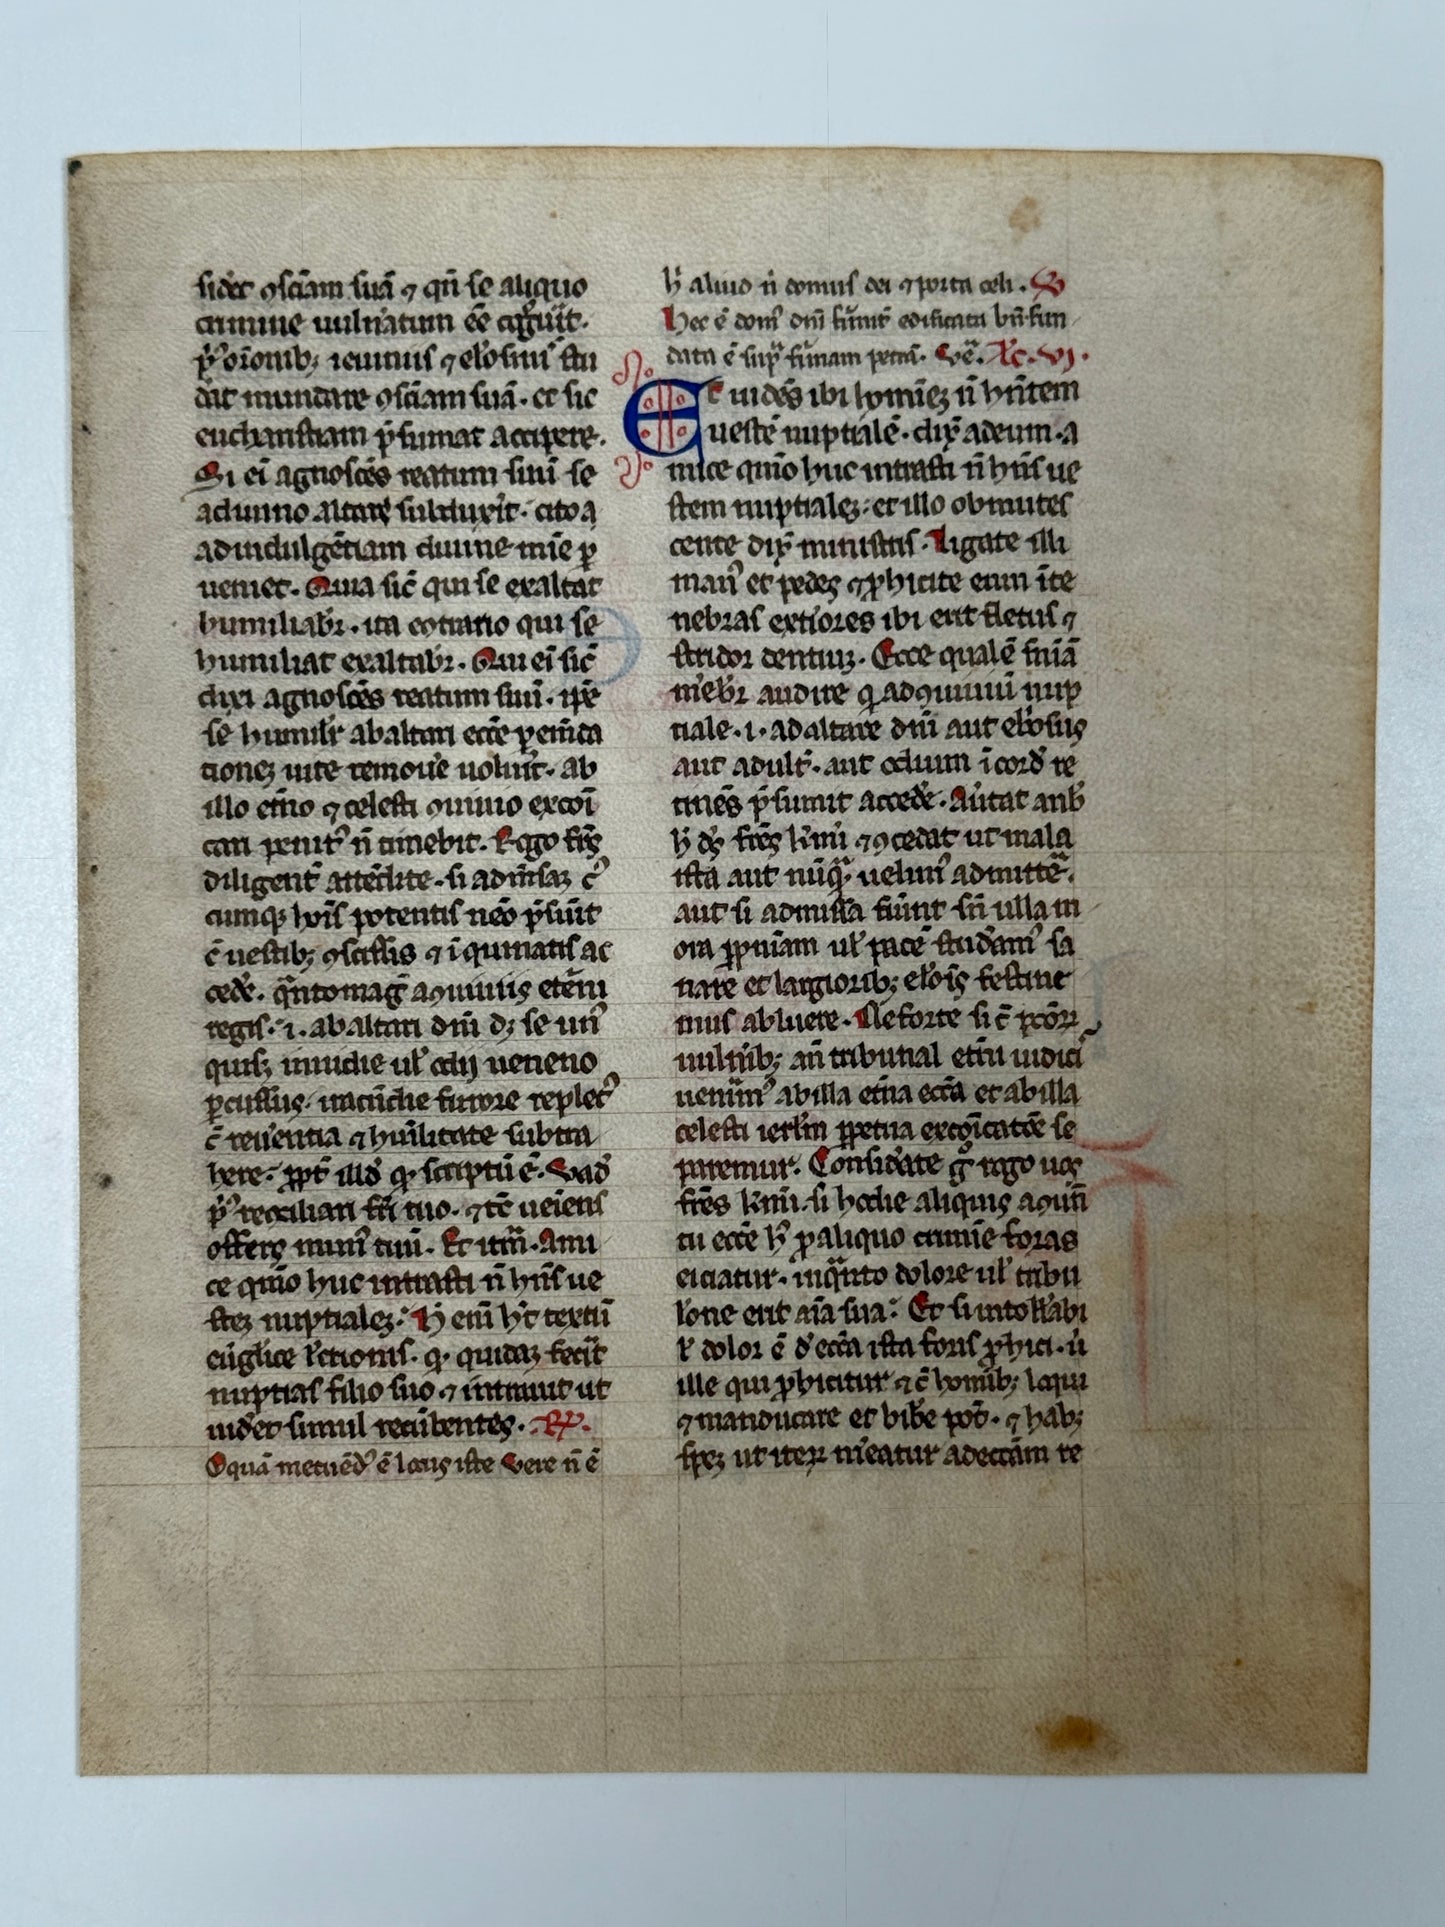 sider ꝯsciam suā ⁊ qn̄ se aliquo
crimine uuln̄atum eē cogͦuit.
p̾ oīonib; ieiuniis ⁊ el'osinis stu
deat mundare ꝯsciam suā. et sic
eucharistiam p̄sumat accipere.
Si ei agnoscēs reatum suū se
a diuino altare subduxīt. cito a
ad indulgētiam diuine mīe p
ueniet. Quia sic̄ qui se exaltat
humiliabr̄. ita eꝯtrario qui se
humiliat exaltabr̄. Qui ei sic̄
dixi agnoscēs reatum suū. ip̄e
se humilit̄ ab altari ecc̄e p emēda
tionez uite remoūe uoluīt. ab
illo et̄no ⁊ celesti ꝯuiuio excoī
cari penit̾ n̄ timebit. Rogo fr̄es
diligent̄ attēdite. si ad mēsaz c̾
cumq; hoīs potentis nēo p̄sūit
c̄ uestib; ꝯscissis ⁊ īquinatis ac
cede̅. qͣnto maḡ a ꝯuiuiis et̄ni
regis. i. ab altari dn̄i d; se un̾
quisq; inuidie ul' odij ueneno
pcussus. iracūdie furore replet̾
c̄ reūentia ⁊ hūilitate subtra
here. ꝓpt̄ illd̾ qͥ sc̄riptū ē. Vad̾
p̾ recōciliari fr̄i tuo. ⁊ tc̄ ueiens
offeres mun̾ tuū. Et itm̄. Ami
ce quͦmo huc intrasti n̄ hn̄s ue
stez nuptialez. H̄ enī h̄t textū
eūglice lc̄tionis. qͥ quidaz fecit
nuptias filio suo ⁊ intrauit ut
uidet simul recūbentes. R̷.
O quā metuēd̾ ē locus iste Vere n̄ ē
h̾ aliud n̄ domus dei ⁊ porta celi. V
Hec ē dom̾ dn̄i fūnit̄ edificata bn̄ fun
data ē supͣ fūnam petrā. Vē. Lc. vj.
Et uidēs ibi hominez n̄ hn̄tem
uestē nuptialē. dix̄ ad eum. a
mice quͦmo huc intrasti n̄ hn̄s ue
stem nuptialez. et illo obmutes
cente dix̄ ministris. Ligate illi
man̾ et pedes ⁊ ꝓhicite eum ī te
nebras ext̾iores ibi erit fletus ⁊
stridor dentiuz. Ecce qualē sn̄iā
m̾ebr̄ audire qͥ ad ꝯuiuiū nup
tiale. i. ad altare dn̄i aut eb̾osus
aut adult̄. aut odium ī cord̾ re
tinēs p̄sumit accede̅. Aūtat a nob̾
h̾ d̄s fr̄es k̄mi ⁊ ꝯcedat ut mala
ista aut nūqͣ uelim̾ admitte̅.
aut si admissa fūint sn̄ ulla m
ora ꝑ pn̄iam ul' pacē studeam̾ sa
nare et largiorib; el'ois festine
mus abluere. Ne forte si c̄ pc̄or̄
uuln̾ib; an̄ tribunal et̄ni iudicī
uenim̾ ab illa et̄na ecc̄a et ab illa
celesti ierl̄m ꝑpetua excōicatōe se
paremur. Considate gͦ rogo uos
fr̄es k̄mi. si hodie aliquis a ꝯuētu
ecc̄e h̾ ꝓ aliquo crimīe foras
eiciatur. in qͣnto dolore ul' tribu
l'one erit aīa sua. Et si intoll'abi
l' dolor ē d̾ ecc̄a ista foris ꝓhici. u̾
ille qui ꝓhicitur ⁊ c̄ homīib; loqui
⁊ manducare et bibe̅ pot̄. ⁊ hab;
spez ut iterꝝ m̾eatur ad ecc̄am re